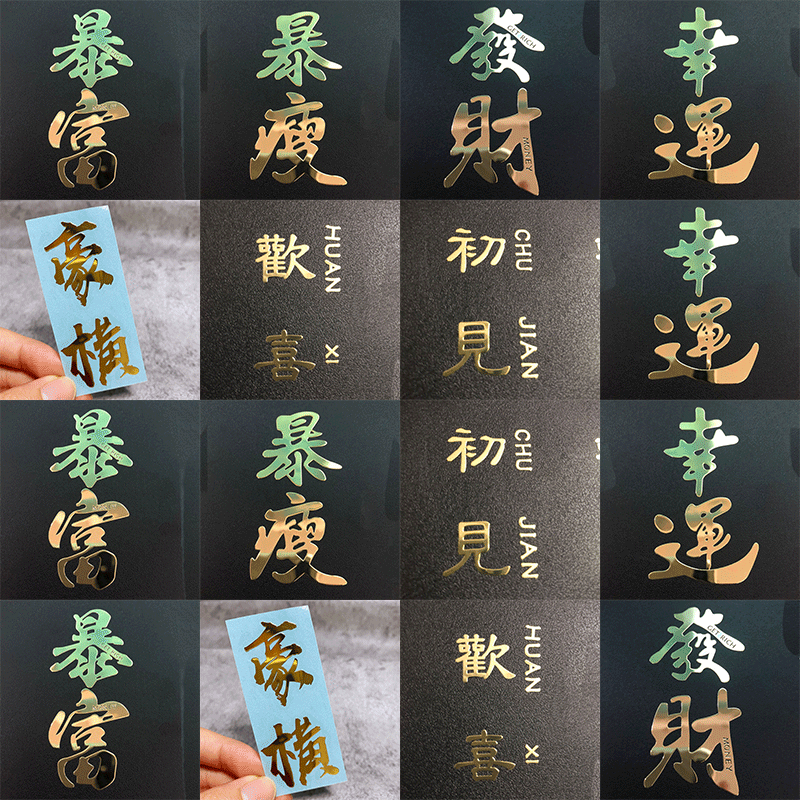 暴
富
暴
瘦
發
GET RICH
財
MONEY
幸
運
豪
横
歡 HUAN
喜 XI
初 CHU
見 JIAN
幸
運
暴
富
暴
瘦
初 CHU
見 JIAN
幸
運
暴
富
豪
横
歡 HUAN
喜 XI
發
GET RICH
財
MONEY